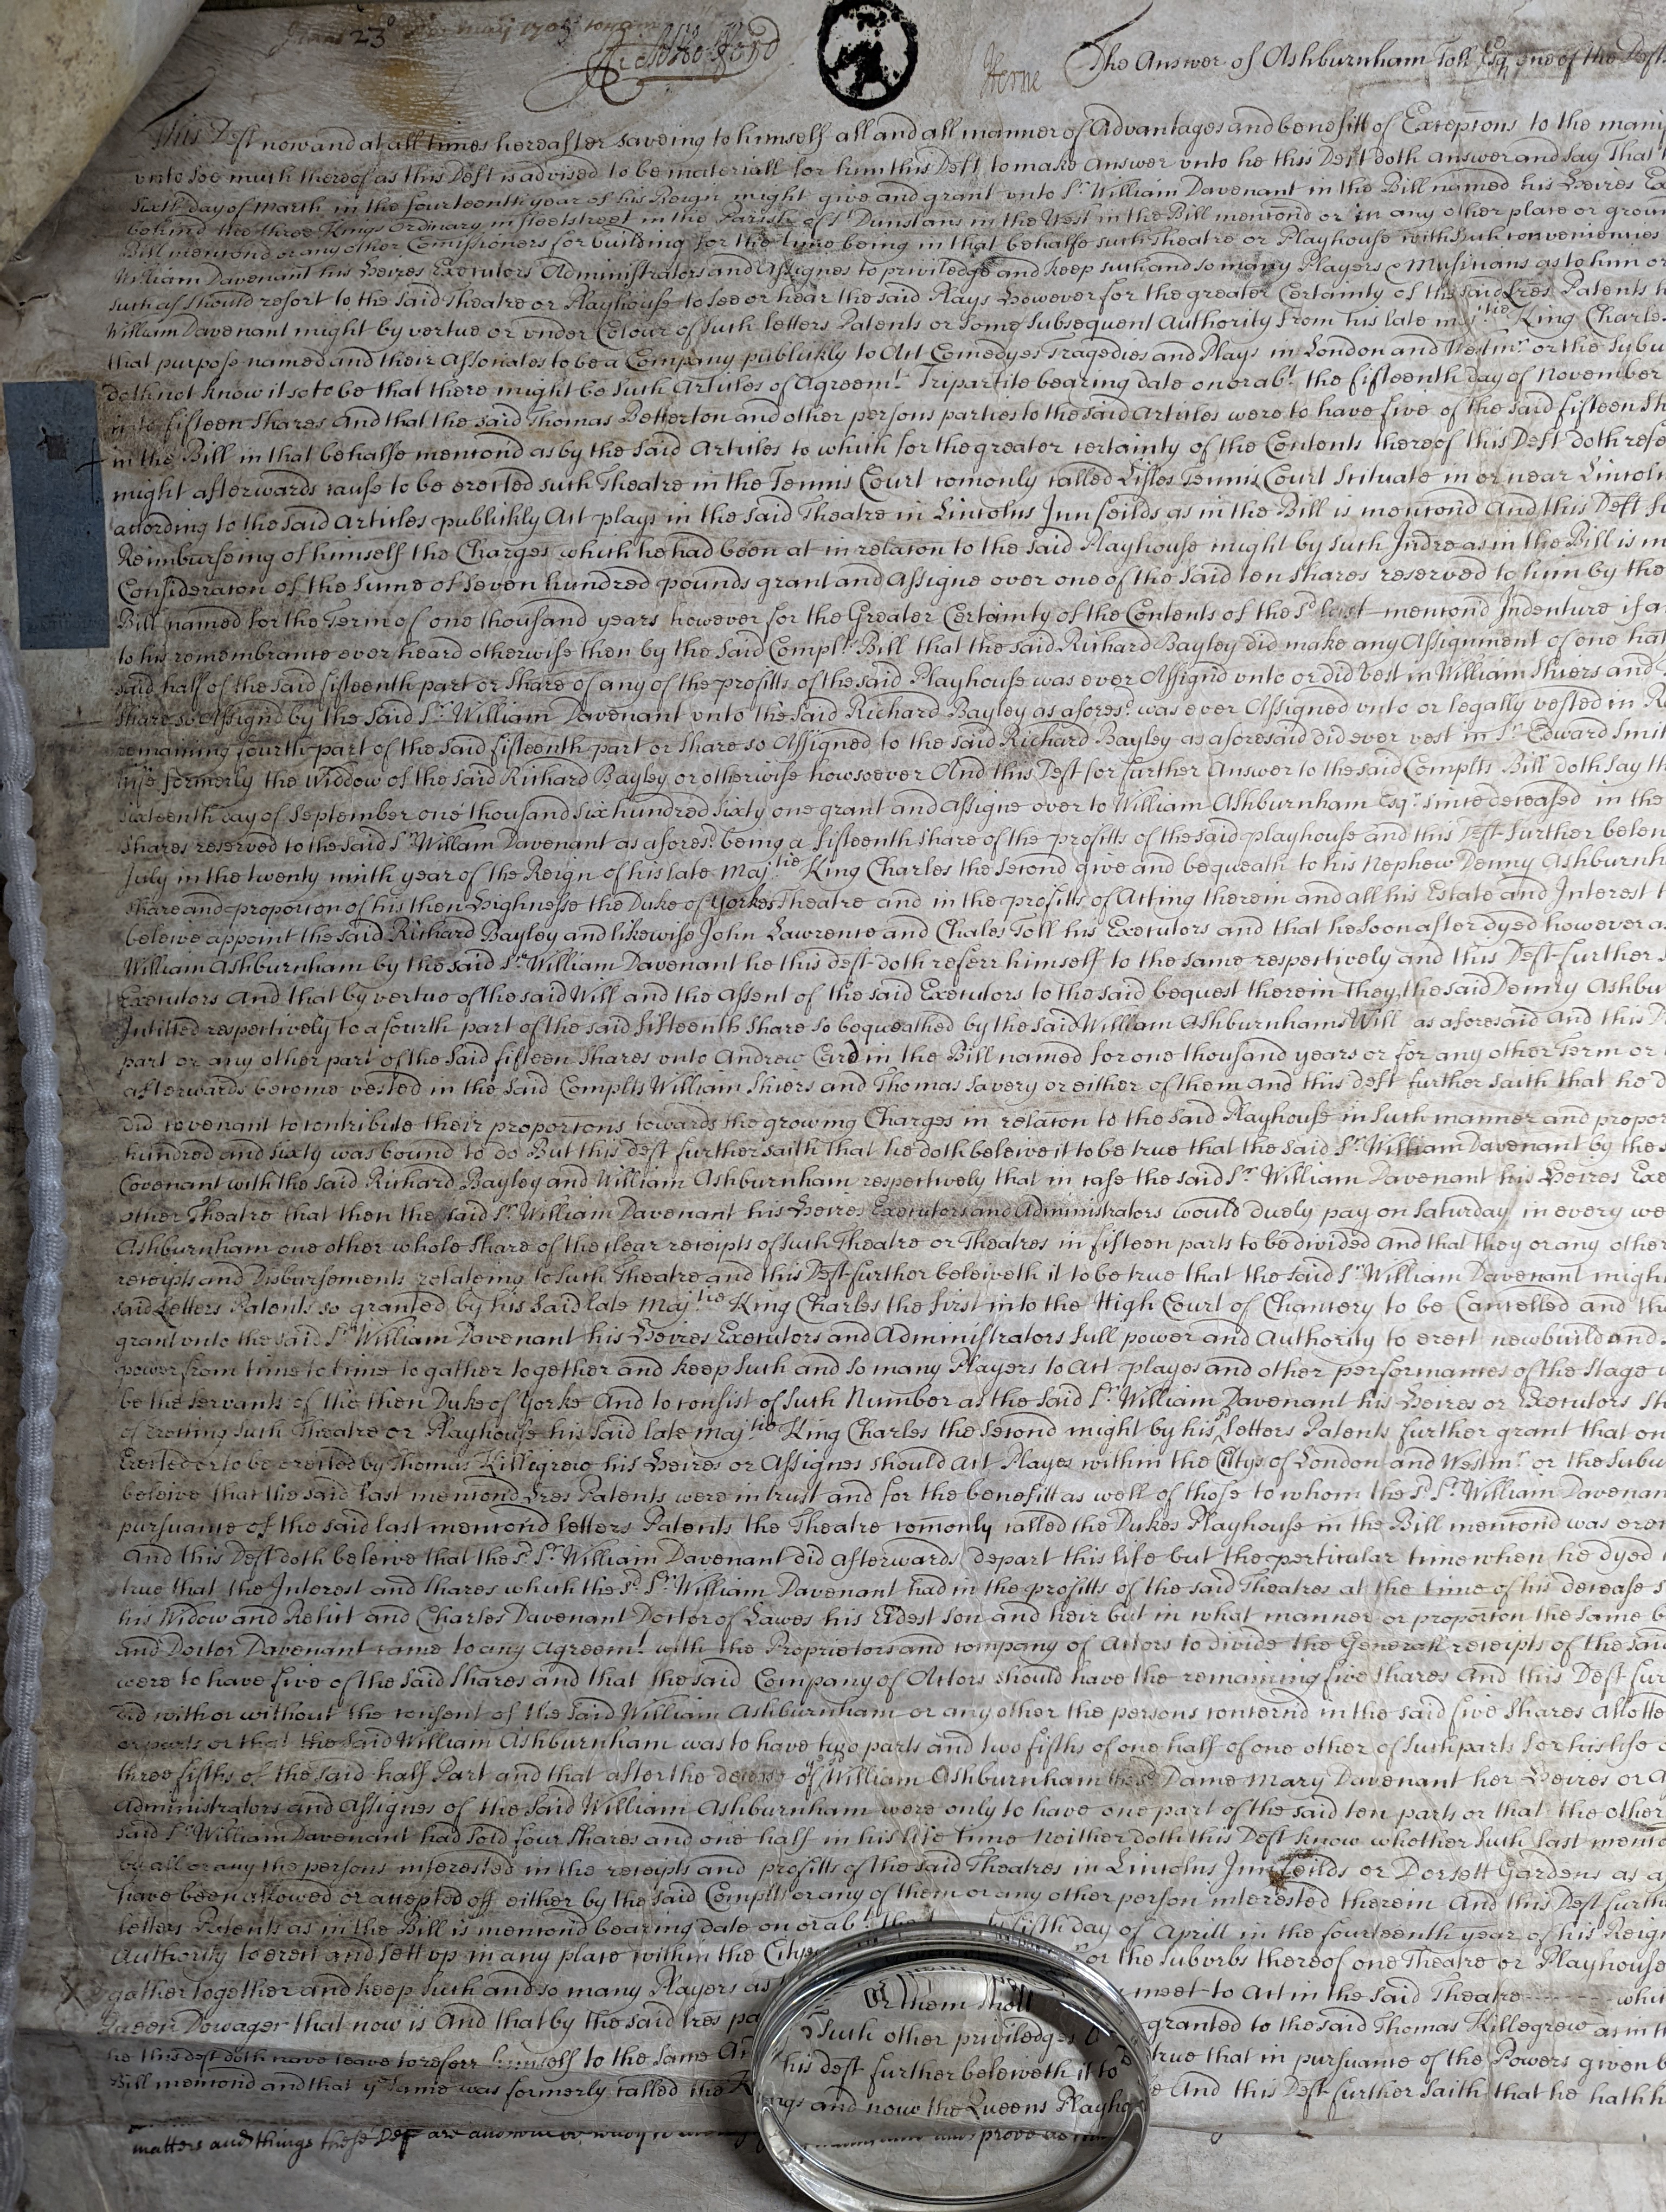 23
Herne The Answer of Ashburnham Toll Esqr one of the Defts
This Deft now and at all times hereafter saveing to himself all and all manner of Advantages and benefitt of Exceptons to the
vnto soe much thereof as this Deft is advised to be materiall for him this Deft to make Answer vnto he this Deft doth answer and say That
Sixth day of March in the fourteenth year of his Reign might give and grant vnto Sr William Davenant in the Bill named his Heires
behind the three Kings Ordinary in fleetstreet in the Parish of St Dunstans in the West in the Bill mentond or in any other place or
Bill mentond or any other Comissioners for building for the time being in that behalfe such Theatre or Playhouse with such conveniencies
William Davenant his Heires Executors Administrators and Assignes to priviledge and keep such and so many Players & Musitians as to him or
such as should resort to the said Theatre or Playhouse to see or hear the said Plays however for the greater Certainty of the said Lres Patents
William Davenant might by vertue or vnder Colour of such letters Patents or some subsequent Authority from his late majtie King
that purpose named and their Assoriates to be a Company publickly to Act Comedyes Tragedies and Plays in London and Westmr or the
doth not know it so to be that there might be such Articles of Agreemt Tripartite bearing date on or abt the fifteenth day of November
into fifteen shares And that the said Thomas Betterton and other persons parties to the said Articles were to have five of the said fifteen
in the Bill in that behalfe mentond as by the said Articles to which for the greater certainty of the Contents thereof this Deft doth
might afterwards cause to be erected such Theatre in the Tennis Court comonly called Lisles Tennis Court Scituate in or near
according to the said Articles publickly Act plays in the said Theatre in Lincolns Inn feilds as in the Bill is mentond And this Deft
Reimburseing of himself the Charges which he had been at in relaton to the said Playhouse might by such Indre as in the Bill is
Consideraton of the sume of seven hundred pounds grant and Assigne over one of the said ten shares reserved to him by the
Bill named for the Term of one thousand years however for the Greater Certainty of the Contents of the sd last mentond Indenture if
to his remembrance ever heard otherwise then by the said Complts Bill that the said Richard Bayley did make any Assignment of one
said half of the said fifteenth part or share of any of the profitts of the said Playhouse was ever Assignd vnto or did vest in William Shiers and
share so Assignd by the said Sr William Davenant vnto the said Richard Bayley as aforesd was ever Assigned vnto or legally vested in
remaining fourth part of the said fifteenth part or share so Assigned to the said Richard Bayley as aforesaid did ever vest in Sr Edward
wife formerly the Widdow of the said Richard Bayley or otherwise howsoever And this Deft for further Answer to the said Complts Bill doth say
sixteenth day of September one thousand six hundred sixty one grant and Assigne over to William Ashburnham Esqr since deceased in the
shares reserved to the said Sr William Davenant as aforesd being a fifteenth share of the profitts of the said playhouse and this Deft further
July in the twenty ninth year of the Reign of his late Majtie King Charles the second give and bequeath to his Nephew Denny
share and proporton of his then Highnesse the Duke of Yorkes Theatre and in the profitts of Acting therein and all his Estate and Interest
beleive appoint the said Richard Bayley and likewise John Lawrence and Chales Toll his Executors and that he soon after dyed however
William Ashburnham by the said Sr William Davenant he this deft doth referr himself to the same respectively and this Deft further
Executors And that by vertue of the said Will and the Assent of the said Executors to the said bequest therein They the said Denny
Intitled respectively to a fourth part of the said fifteenth share so bequeathed by the said William Ashburnhams Will as aforesaid And this
part or any other part of the said fifteen shares vnto Andrew Card in the Bill named for one thousand years or for any other Term or
afterwards become vested in the said Complts William Shiers and Thomas Savery or either of them And this deft further saith that he
did covenant to contribute their proportons towards the growing Charges in relaton to the said Playhouse in such manner and
hundred and sixty was bound to do But this deft further saith That he doth beleive it to be true that the said Sr William Davenant by the
Covenant with the said Richard Bayley and William Ashburnham respectively that in case the said Sr William Davenant his Heires
other Theatre that then the said Sr William Davenant his Heires Executors and Administrators would duely pay on saturday in every
Ashburnham one other whole share of the clear receipts of such Theatre or Theatres in fifteen parts to be divided And that they or any other
receipts and Disbursements relateing to such Theatre and this Deft further beleiveth it to be true that the said Sr William Davenant
said Letters Patents so granted by his said late Majtie King Charles the first into the High Court of Chancery to be Cancelled and
grant vnto the said Sr William Davenant his Heires Executors and Administrators full power and Authority to erect new build and
power from time to time to gather together and keep such and so many Players to Act playes and other performances of the Stage
be the servants of the then Duke of Yorke And to consist of such Number as the said Sr William Davenant his Heires or Executors
of erecting such Theatre or Playhouse his said late Majtie King Charles the second might by his sd letters Patents further grant that
Erected or to be erected by Thomas Killigrew his Heires or Assignes should Act Playes within the Citys of London and Westmr or the
beleive that the said last mentond Lres Patents were in trust and for the benefitt as well of those to whom the sd Sr William
pursuance of the said last mentond letters Patents the Theatre comonly called the Dukes Playhouse in the Bill mentond was
And this Deft doth beleive that the sd Sr William Davenant did afterwards depart this life but the perticular time when he dyed
true that the Interest and shares which the sd Sr William Davenant had in the profitts of the said Theatres at the time of his decease
his Widow and Relict and Charles Davenant Doctor of Lawes his Eldest son and heir but in what manner or proporton the same
and Doctor Davenant came to any Agreemt with the Proprietors and company of Actors to divide the Generall receipts of the
were to have five of the said shares and that the said Company of Actors should have the remaining five shares And this Deft
did with or without the consent of the said William Ashburnham or any other the persons concernd in the said five shares
or parts or that the said William Ashburnham was to have two parts and two fifths of one half of one other of such parts for his life
three fifths of the said half Part and that after the decease of William Ashburnham the sd Dame Mary Davenant her Heires or
Administrators and Assignes of the said William Ashburnham were only to have one part of the said ten parts or that the other
said Sr William Davenant had sold four shares and one half in his life time Neither doth this Deft know whether such last
by all or any the persons interested in the receipts and profitts of the said Theatres in Lincolns Inn feilds or Dorsett Gardens as
have been allowed or accepted off either by the said Complts or any of them or any other person interested therein And this Deft
letters Patents as in the Bill is mentond bearing date on or abt the fifth day of Aprill in the fourteenth year of his
Authority to erect and sett vp in any place within the Citys or the suburbs thereof one Theatre or Playhouse
gather together and keep such and so many Players as of them shall meet to Act in the said Theatre
Queen Dowager that now is And that by the said Lres such other priviledges granted to the said Thomas Killegrew as in
he this deft doth crave leave to referr himself to the same this deft further beleiveth it to be true that in pursuance of the Powers given
Bill mentond and that ye same was formerly called the Kings and now the Queens And this Deft further saith that he hath
matters and things these Deft are and prove